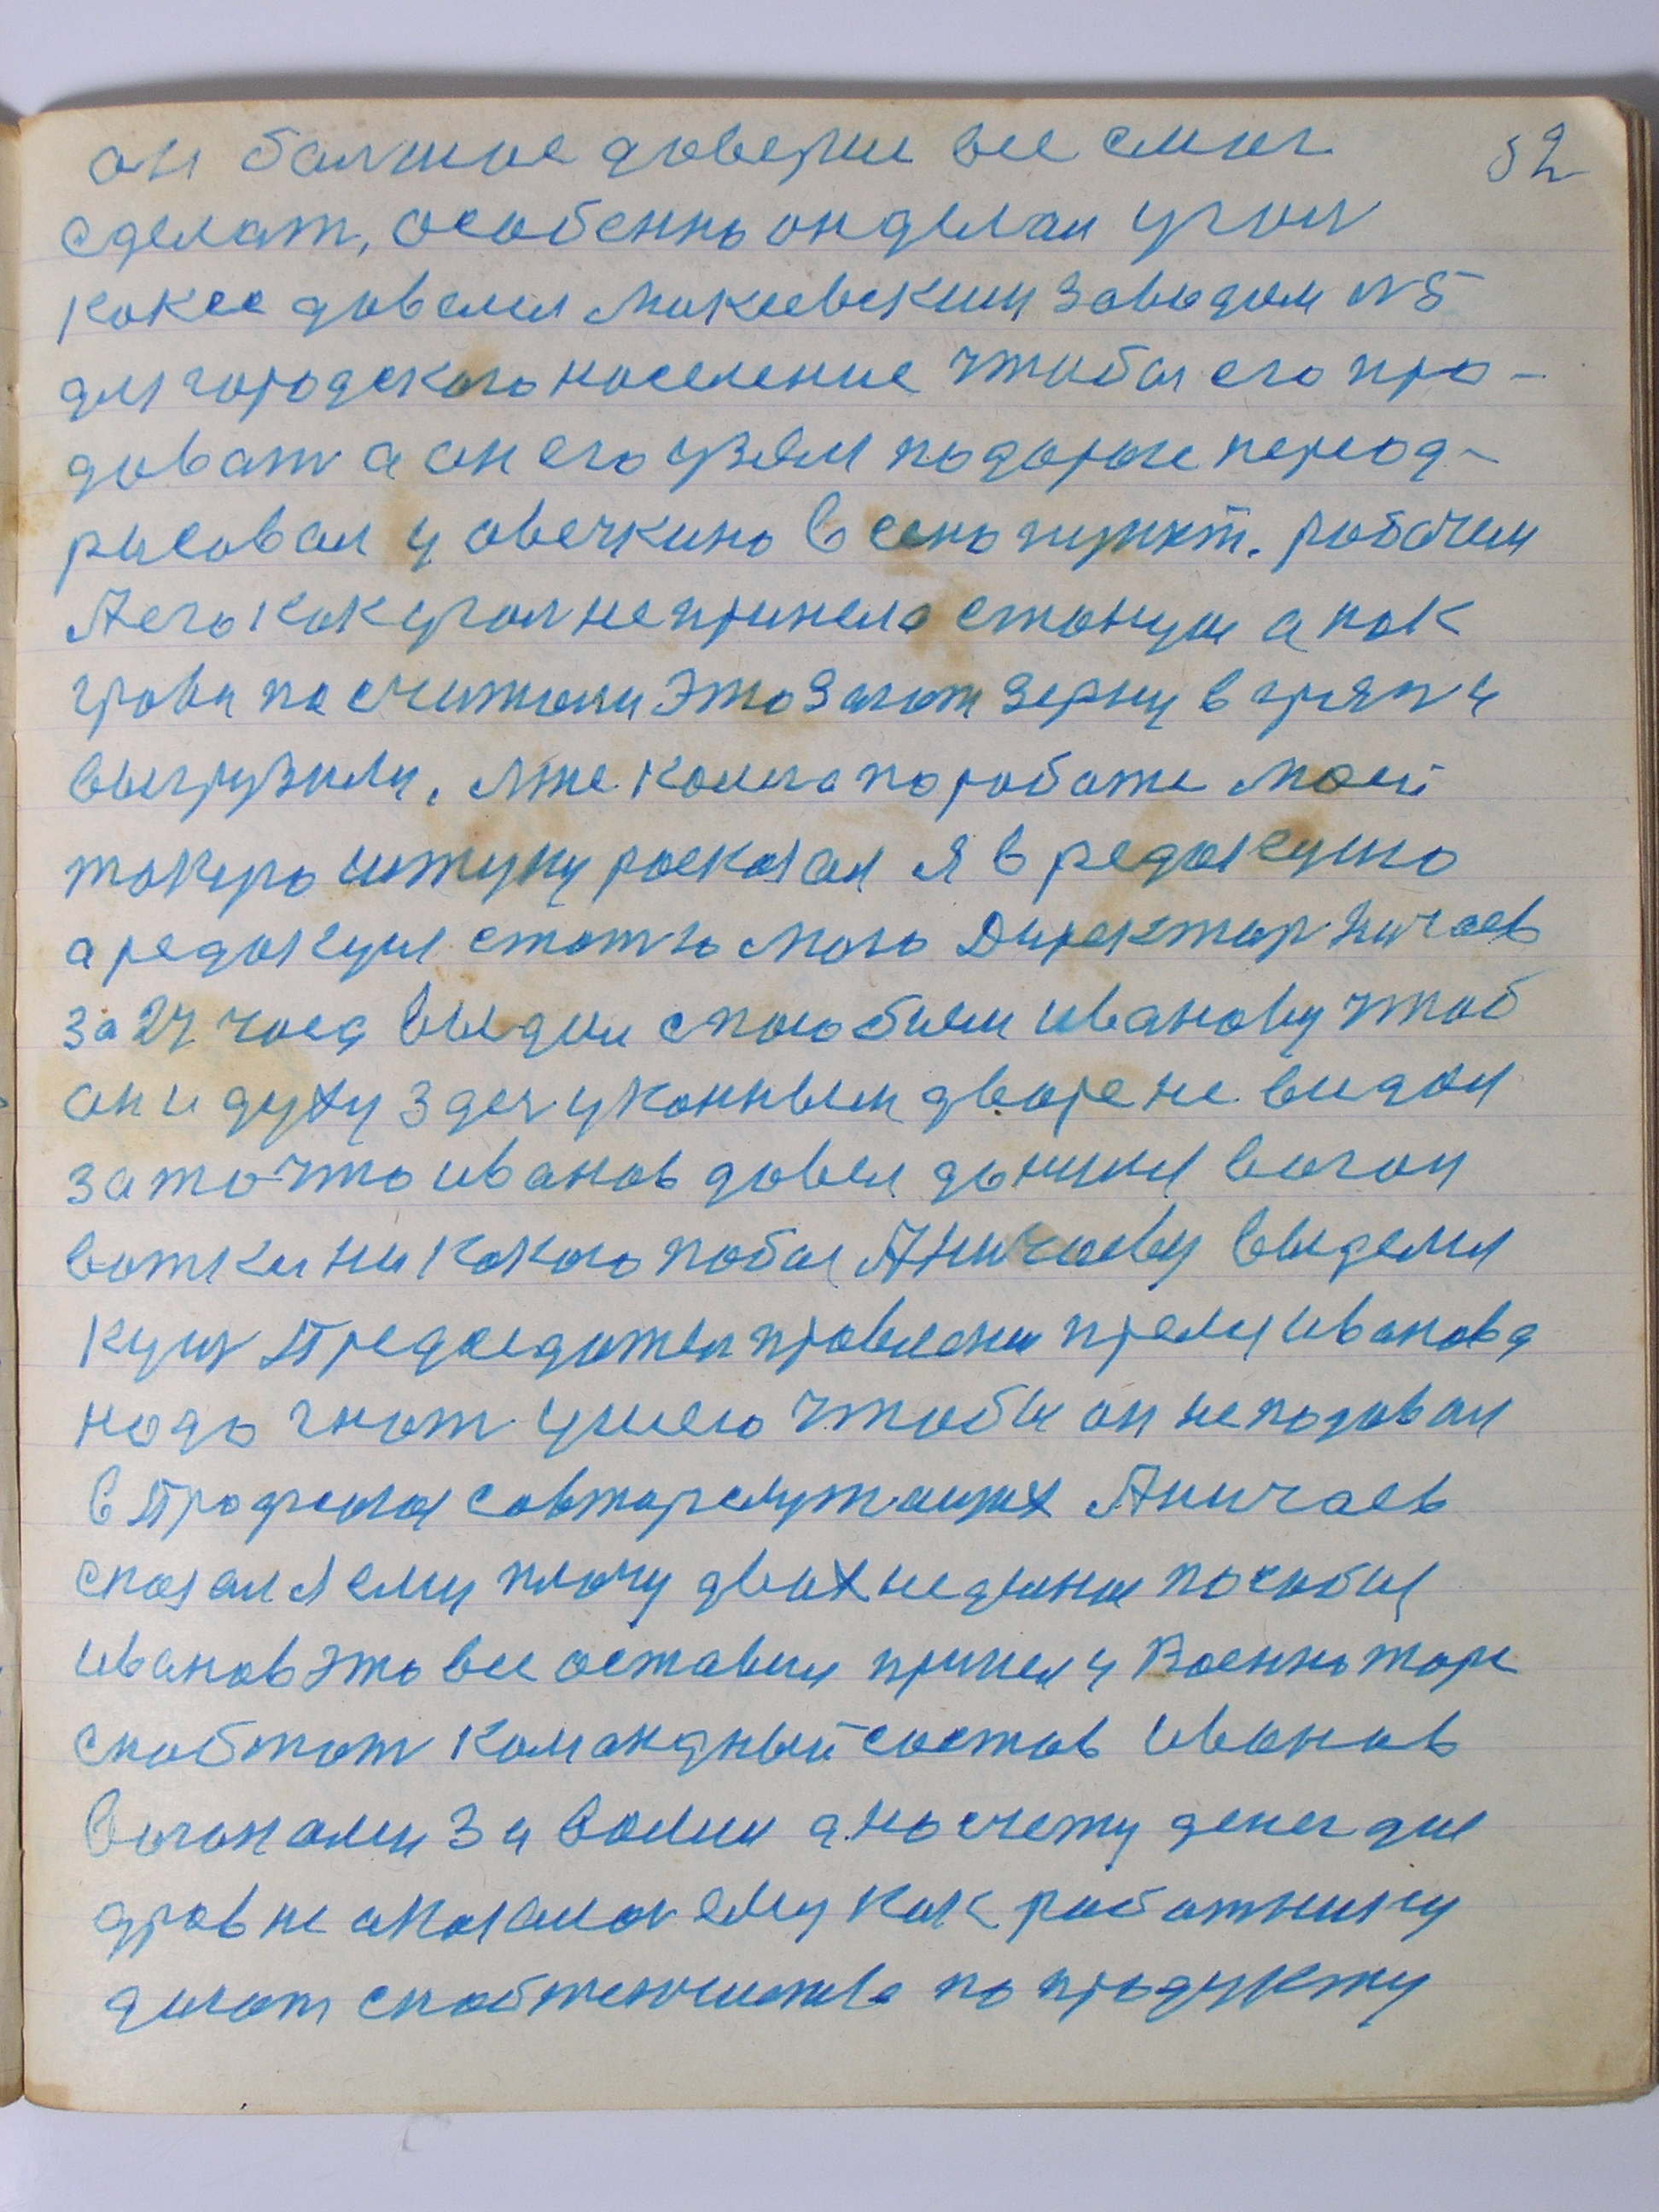 он болшое доверие все смог 52
сделат, особенно он делал угол
коксе давался Макеевским заводом N5
для городского население чтобы его про-
доват а он его узял подороге переод-
рисовал у овечкино в сено пункт. рабочем
А его как угол не принела станция а как
дрова посчитали это Заготзерну в грязи
выгрузили, мне колега по работе моей
такую штуку росказал я в редакцию
а редакция статю мою Директор Ничаев
за 24 часа выдал спасобием Иванову чтоб
он и духу здес у конным дворе не видал
за то что Иванов давел да нуля вагон
ватки никакого побоя Аничаеву выделил
куш Председател правления прему Иванова
надо гнат у шею чтобы он не подавал
в Профсоюз совторгслужащих Аничаев
сказал я ему плачу двохнеделни пособия
Иванов это все оставил пришел у Военноторг
снабжат командный состав Иванов
вагонами за воллил а на счету денег для
дров не оказалос ему как работнику
делат снабженчиства по продукту